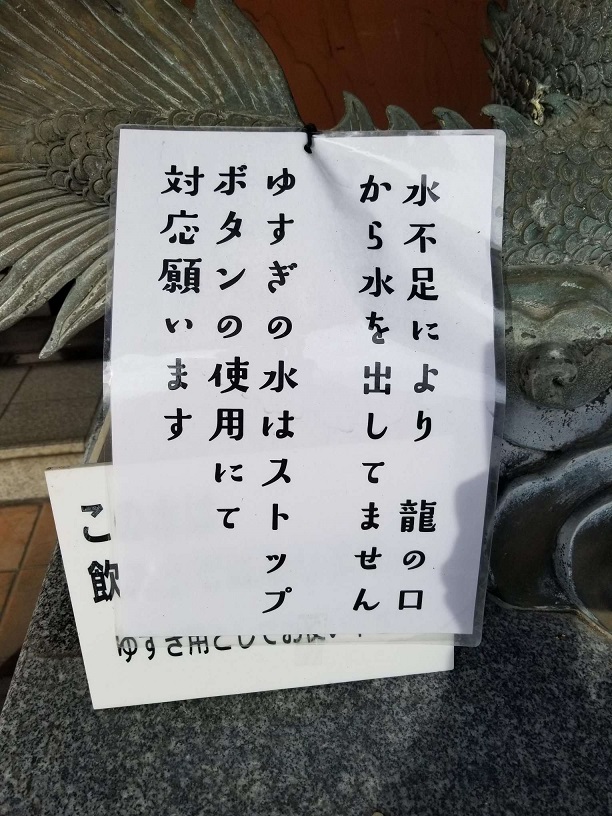 水不足により　龍の口
から水を出してません
ゆすぎの水はストップ
ボタンの使用にて
対応願います
こ
飲
ゆすぎ用としてお使い